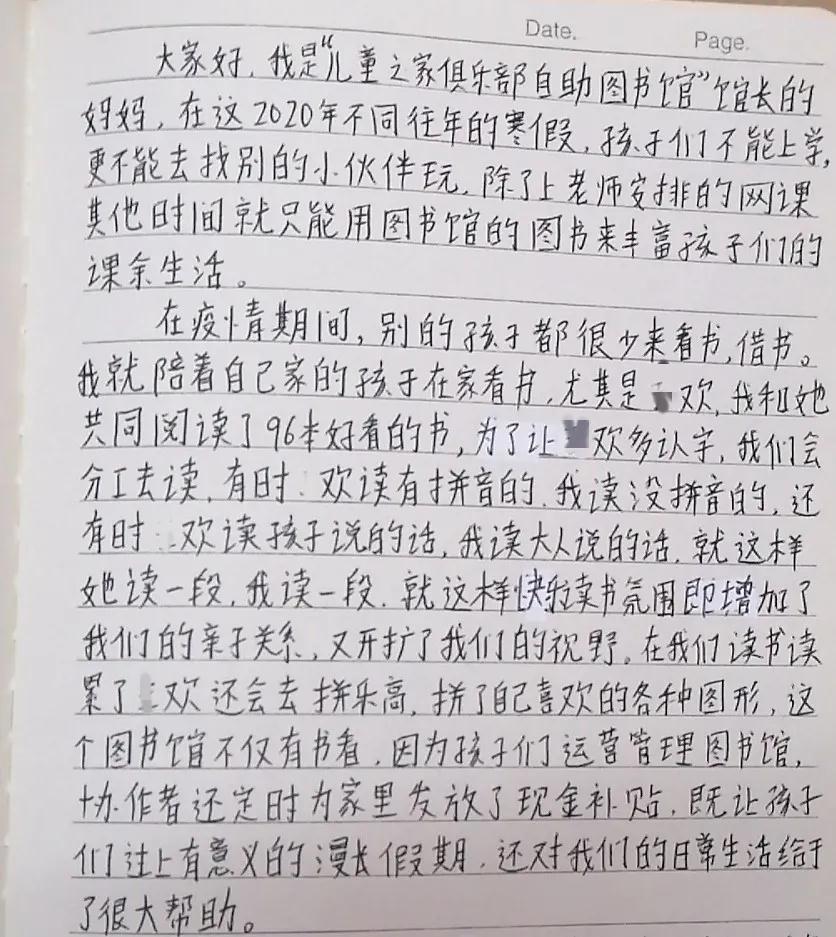 Date.
Page.
大家好,我是“儿童之家俱乐部自助图书馆”馆长的
妈妈,在这2020年不同往年的寒假,孩子们不能上学,
更不能去找别的小伙伴玩,除了上老师安排的网课
其他时间就只能用图书馆的图书来丰富孩子们的
课余生活。
在疫情期间,别的孩子都很少来看书,借书。
我就陪着自己家的孩子在家看书,尤其是欢,我和她
共同阅读了96本好看的书,为了让欢多认字,我们会
分工去读,有时欢读有拼音的,我读没拼音的,还
有时欢读孩子说的话,我读大人说的话,就这样
她读一段,我读一段,就这样快乐读书氛围即增加了
我们的亲子关系,又开扩了我们的视野。在我们读书读
累了欢还会去拼乐高,拼了自己喜欢的各种图形,这
个图书馆不仅有书看,因为孩子们运营管理图书馆,
协作者还定时为家里发放了现金补贴,既让孩子
们过上有意义的漫长假期,还对我们的日常生活给于
了很大帮助。